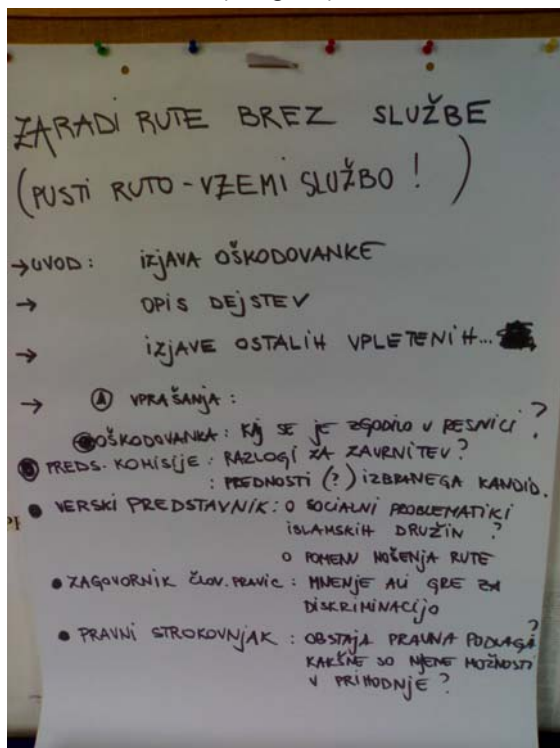 ZARADI RUTE BREZ SLUŽBE
(PUSTI RUTO - VZEMI SLUŽBO ! )
→ UVOD : IZJAVA OŠKODOVANKE
→ OPIS DEJSTEV
→ IZJAVE OSTALIH VPLETENIH...
→ Ⓐ VPRAŠANJA :
OŠKODOVANKA : KAJ SE JE ZGODILO V RESNICI ?
PREDS. KOMISIJE : RAZLOGI ZA ZAVRNITEV ?
: PREDNOSTI (?) IZBRANEGA KANDID.
● VERSKI PREDSTAVNIK : O SOCIALNI PROBLEMATIKI
ISLAMSKIH DRUŽIN ?
O POMENU NOŠENJA RUTE
● ZAGOVORNIK ČLOV. PRAVIC : MNENJE ALI GRE ZA
DISKRIMINACIJO
● PRAVNI STROKOVNJAK : OBSTAJA PRAVNA PODLAGA ?
KAKŠNE SO NJENE MOŽNOSTI
V PRIHODNJE ?